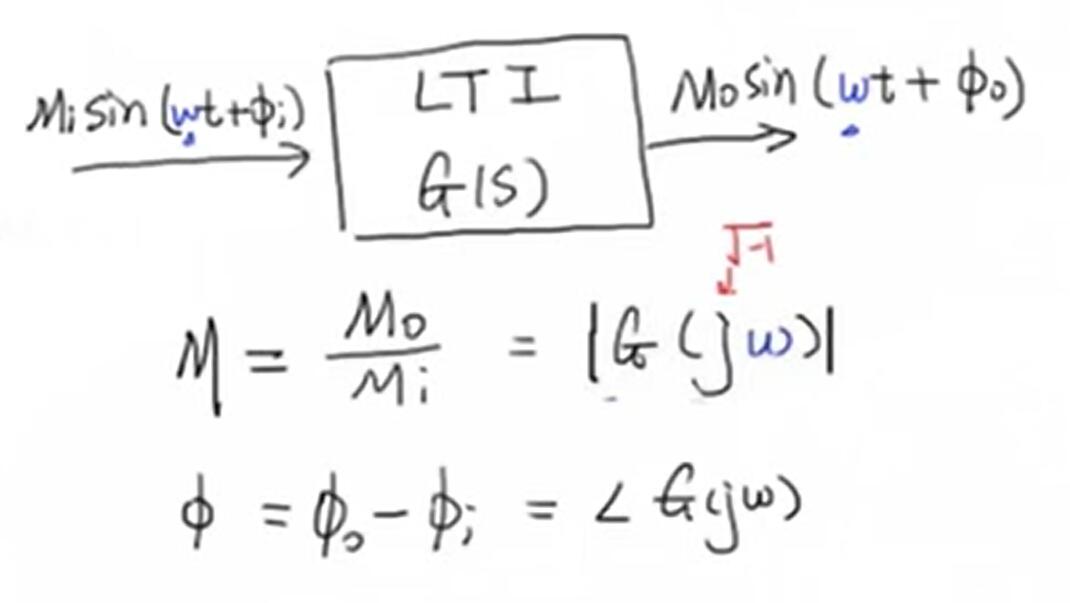 Mi sin (ωt+ϕi)
LTI
G(s)
Mo sin (ωt + ϕo)
√-1
M = Mo/Mi = |G(jω)|
ϕ = ϕo - ϕi = ∠ G(jω)